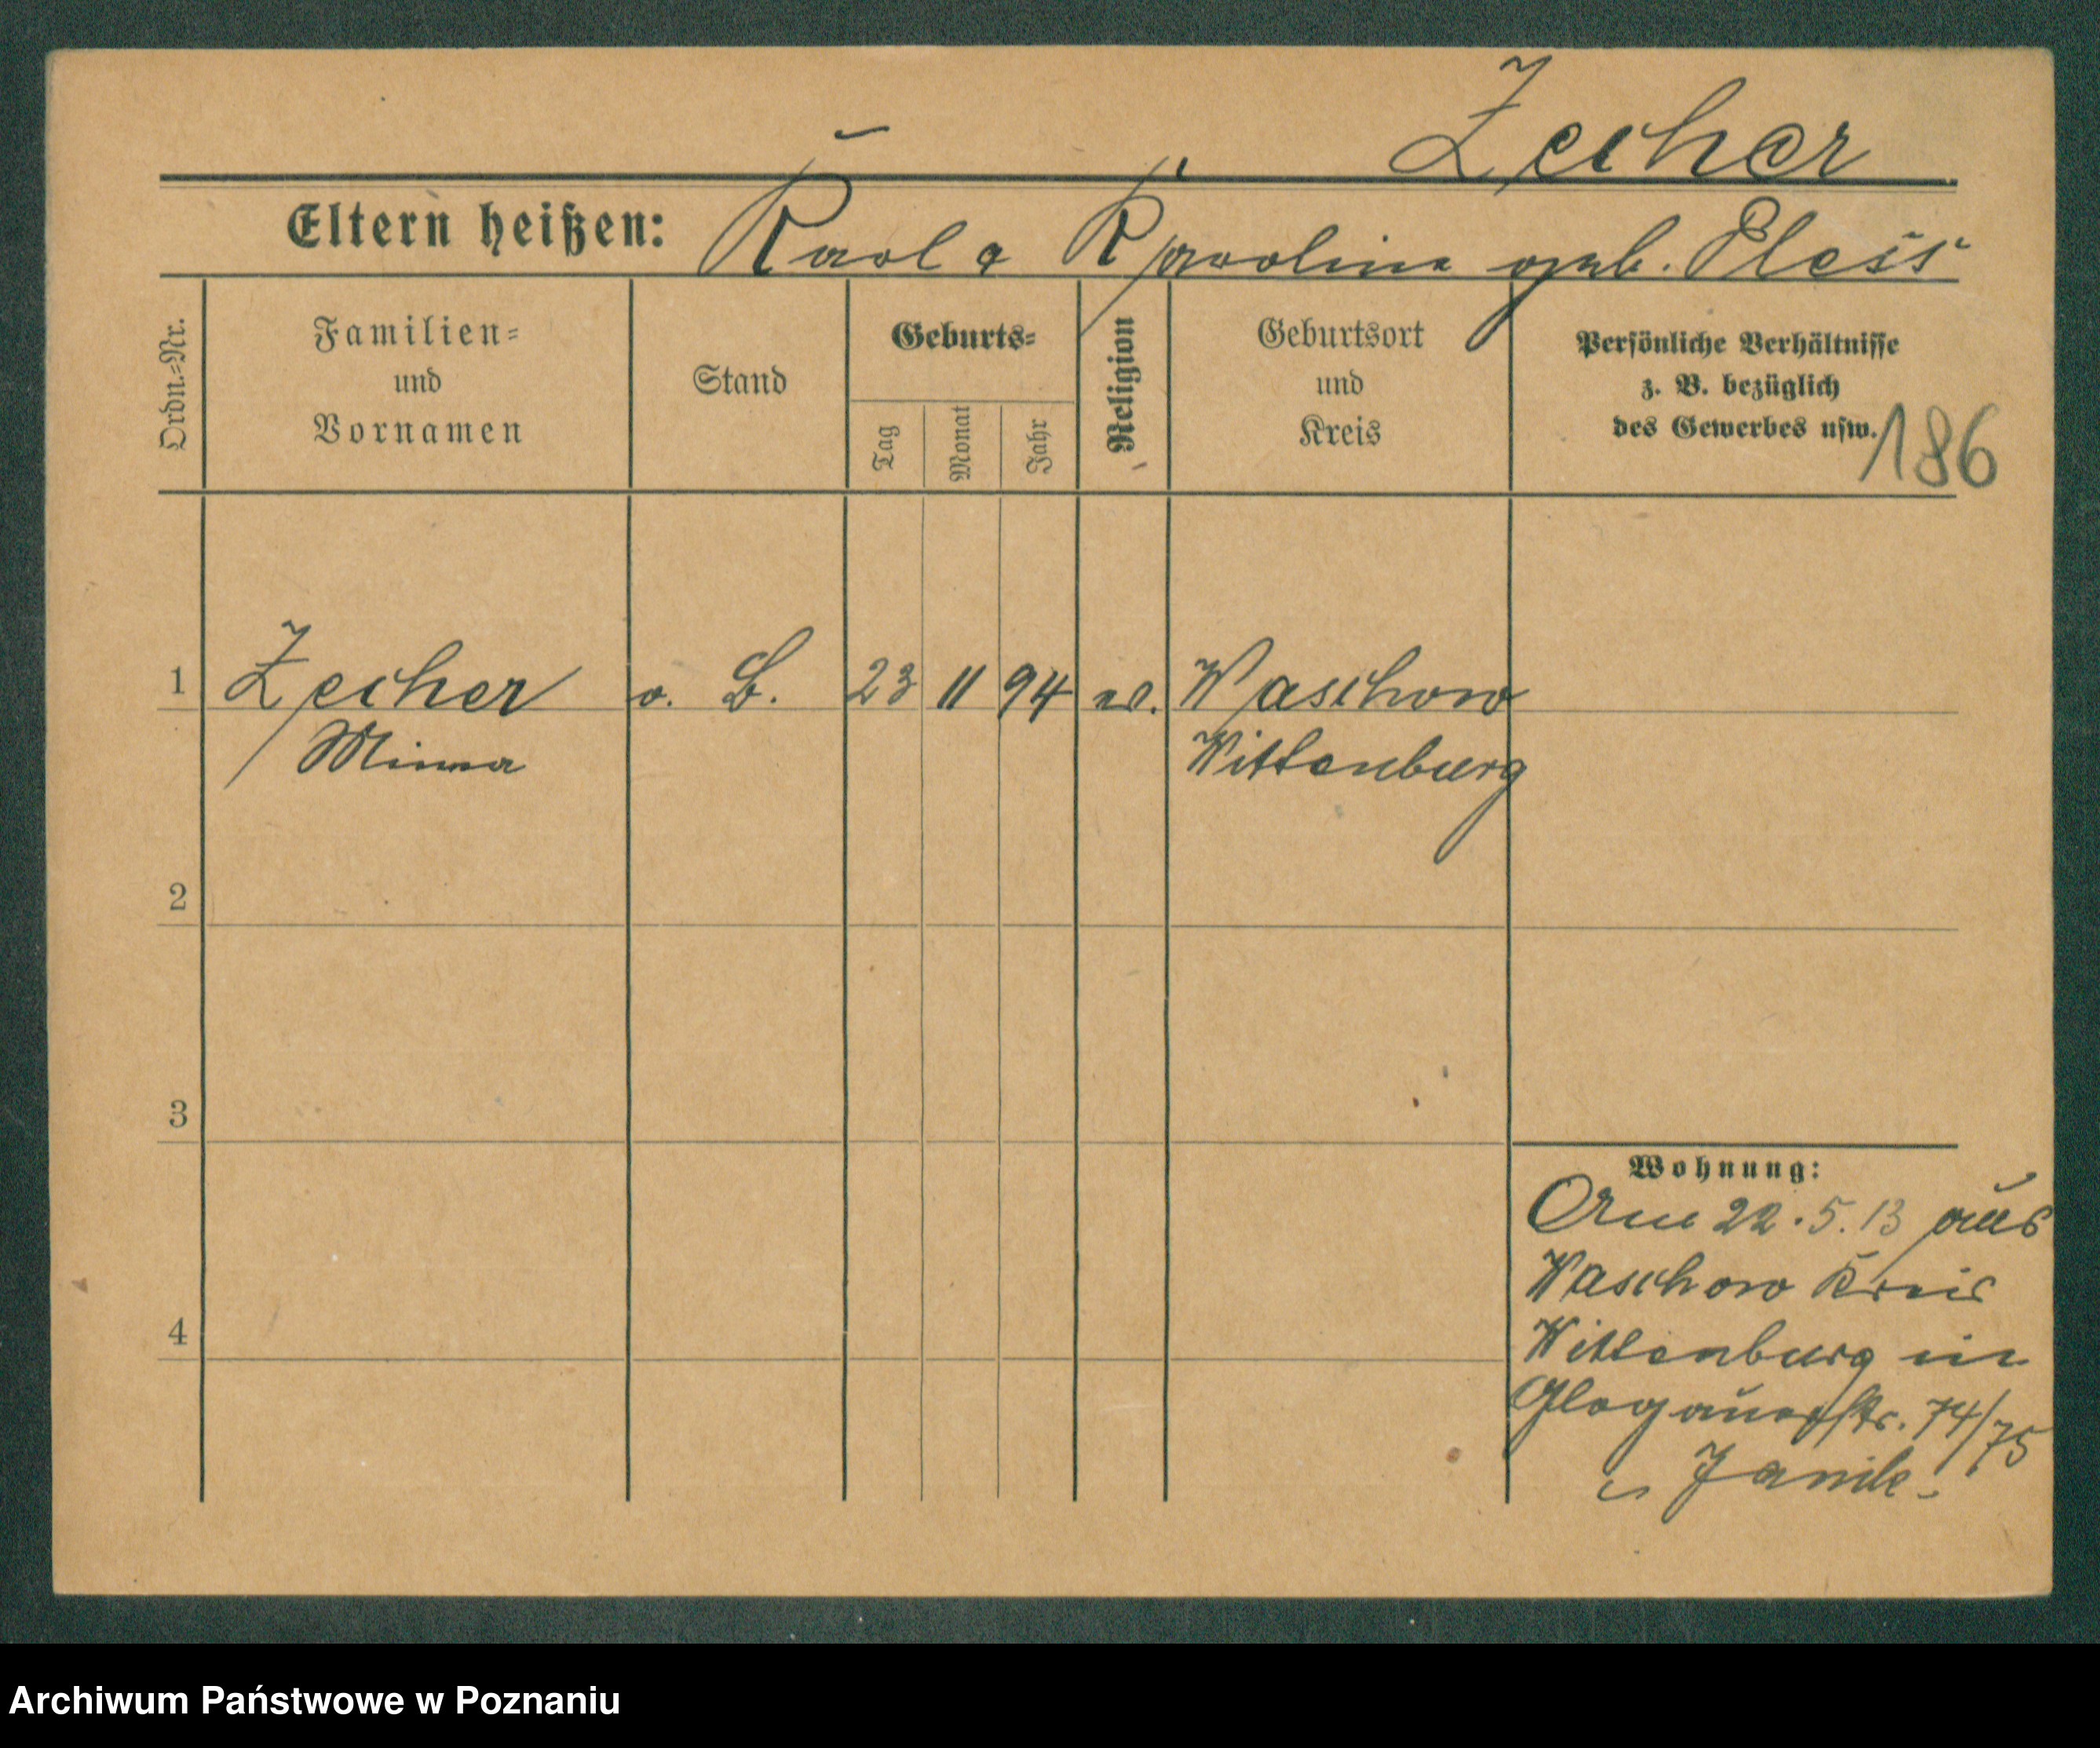 Zecher
Eltern heißen: Karl & Karoline geb. Pless
Ordn.=Nr.
Familien=
und
Vornamen
Stand
Geburts=
Tag
Monat
Jahr
Religion
Geburtsort
und
Kreis
Persönliche Verhältnisse
z. B. bezüglich
des Gewerbes usw.
186
1 Zecher o. B. 23 11 94 ev. Waschow
Minna Wittenburg
2
3
4
Wohnung:
Am 22.5.13 aus
Waschow Kreis
Wittenburg in
Glogauerstr. 74/75
Archiwum Państwowe w Poznaniu